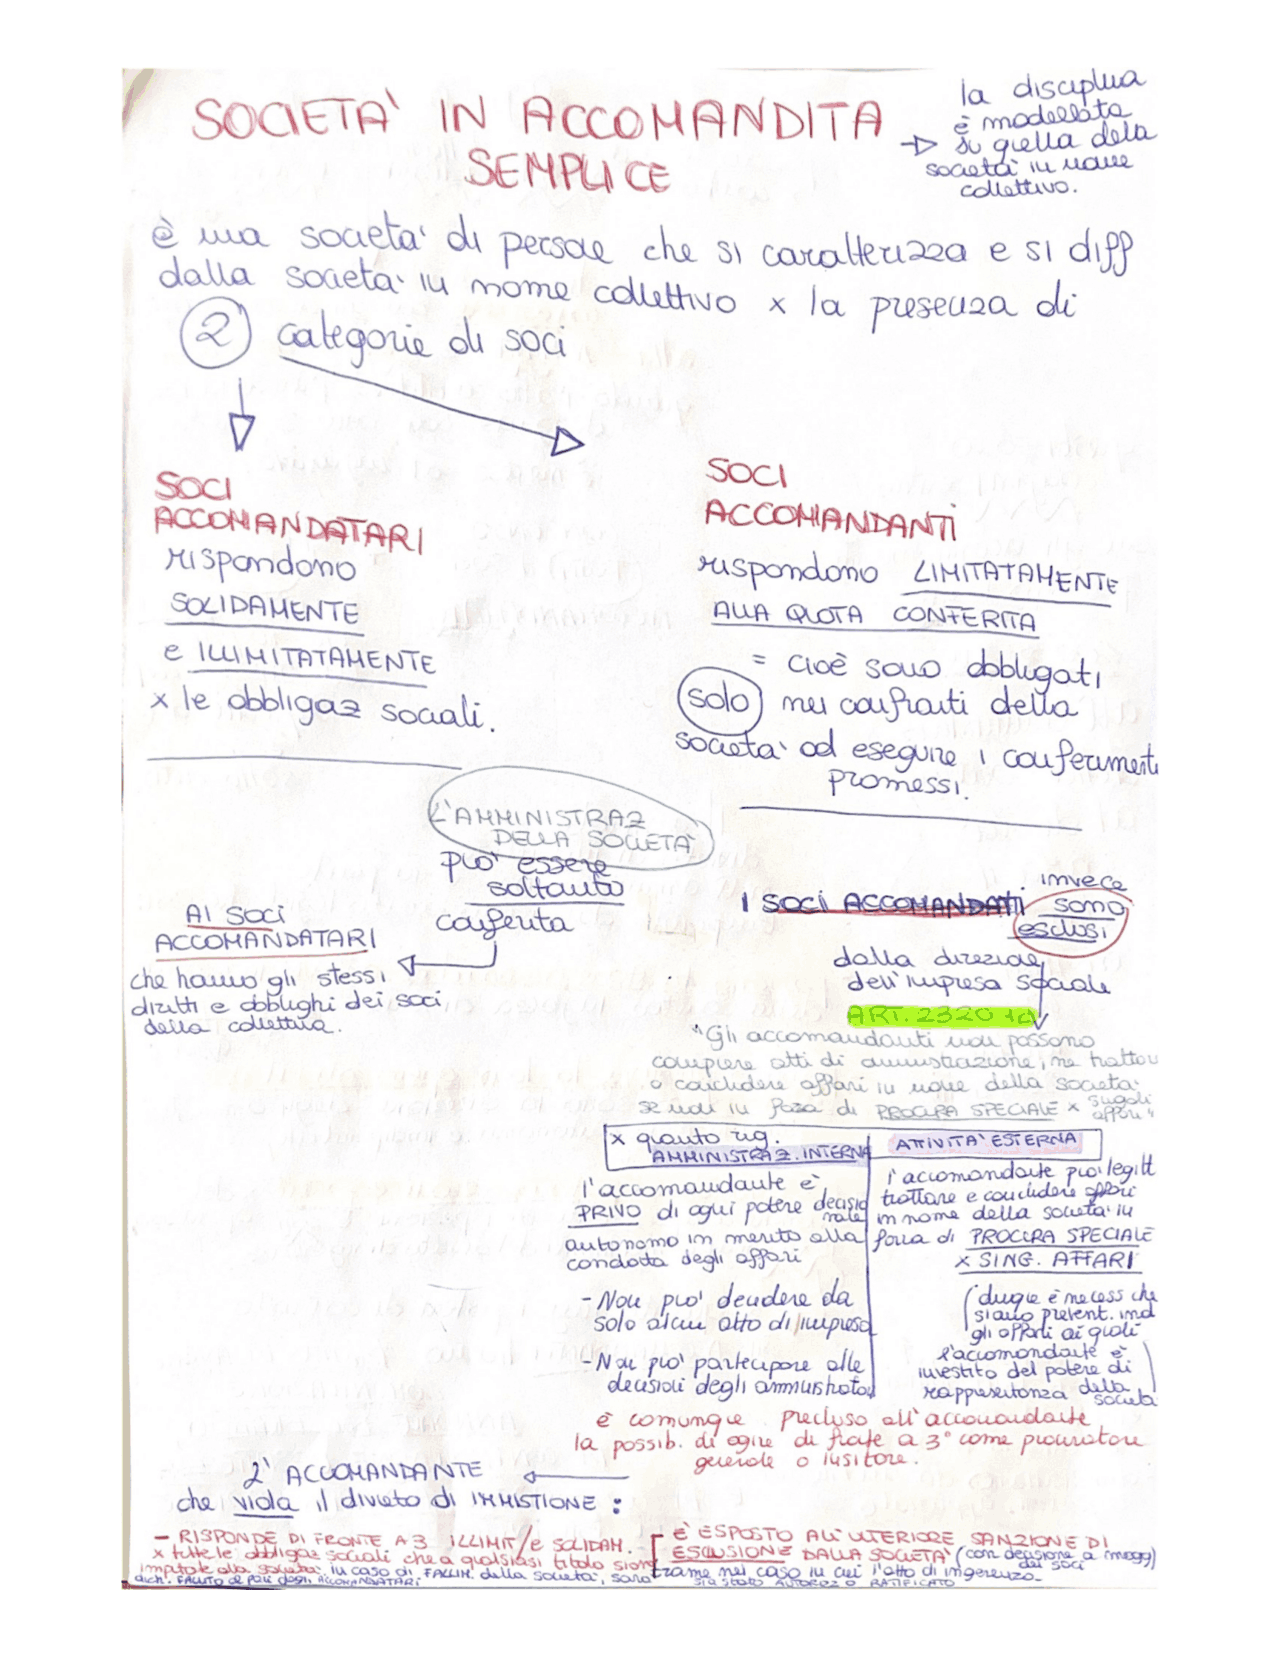 SOCIETA' IN ACCOMANDITA
SEMPLICE
la disciplina
è modellata
su quella della
società in nome
collettivo.
è una societa' di persone che si caratterizza e si diff
dalla societa' in nome collettivo x la presenza di
2 categorie di soci
SOCI
ACCOMANDATARI
rispondono
SOLIDAMENTE
e ILLIMITATAMENTE
x le obbligaz sociali.
SOCI
ACCOMANDANTI
rispondono LIMITATAMENTE
ALLA QUOTA CONFERITA
= cioè sono obbligati
solo nei confronti della
societa' ad eseguire i conferimenti
promessi.
L'AMMINISTRAZ
DELLA SOCIETA'
può essere
soltanto
conferita
AI SOCI
ACCOMANDATARI
che hanno gli stessi
diritti e obblighi dei soci
della collettiva.
I SOCI ACCOMANDANTI invece
sono
esclusi
dalla direzione
dell'impresa sociale
ART. 2320 1c
"Gli accomandanti non possono
compiere atti di amministrazione, ne trattare
o concludere affari in nome della societa'
se non in forza di PROCURA SPECIALE x singoli
affari"
x quanto rig.
AMMINISTRAZ. INTERNA
l'accomandante è
PRIVO di ogni potere decisio
nale
autonomo in merito alla
condotta degli affari
- Non puo' decidere da
solo alcun atto di impresa
- Non puo' partecipare alle
decisioni degli amministratori
ATTIVITA' ESTERNA
l'accomandante puo' legitt
trattare e concludere affari
in nome della societa' in
forza di PROCURA SPECIALE
x SING. AFFARI
(dunque è necess che
siano prevent. ind
gli affari ai quali
l'accomandante è
investito del potere di
rappresentanza della
societa')
è comunque precluso all'accomandante
la possib. di agire di fronte a 3° come procuratore
generale o institore.
L'ACCOMANDANTE
che viola il divieto di IMMISTIONE :
- RISPONDE DI FRONTE A 3 ILLIMIT/e SOLIDAM.
x tutte le obbligaz sociali che a qualsiasi titolo siano
imputate alla societa'. in caso di FALLIM. della societa', sara'
dich. FALLITO al pari degli ACCOMANDATARI
- È ESPOSTO ALL'ULTERIORE SANZIONE DI
ESCLUSIONE DALLA SOCIETA' (con decisione a magg)
dei soci
trame nel caso in cui l'atto di ingerenza
SIA STATO AUTORIZ O RATIFICATO